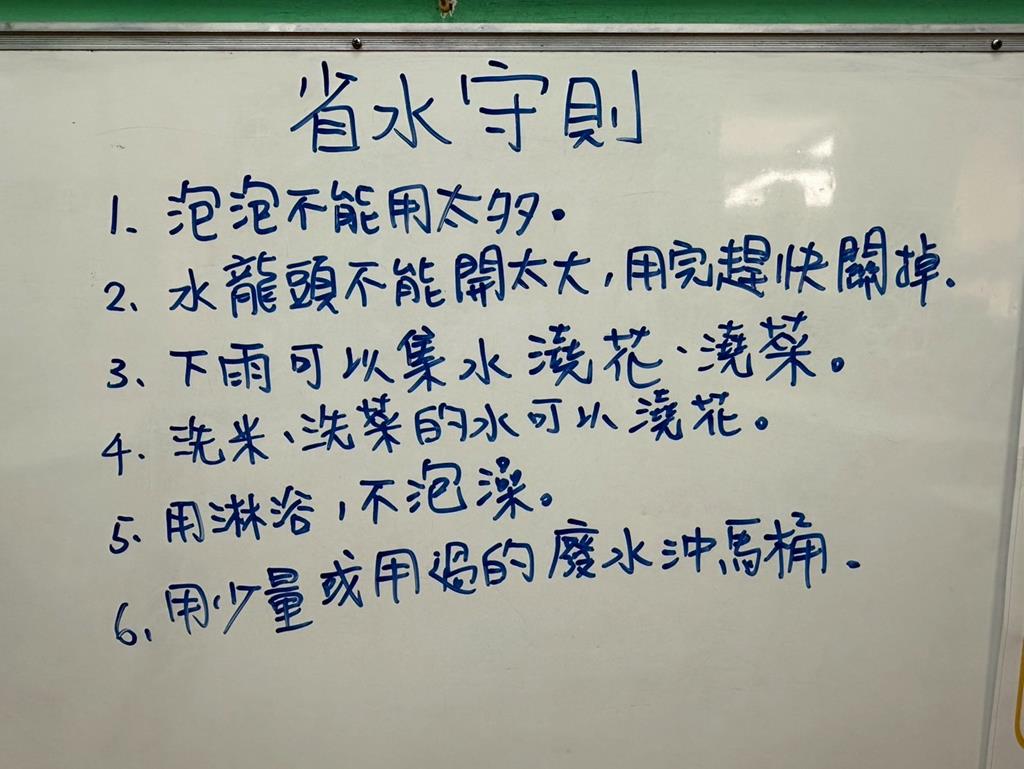 省水守則
1. 泡泡不能用太多。
2. 水龍頭不能開太大,用完趕快關掉.
3、下雨可以集水澆花、澆菜。
4. 洗米、洗菜的水可以澆花。
5. 用淋浴,不泡澡。
6. 用少量或用過的廢水沖馬桶.